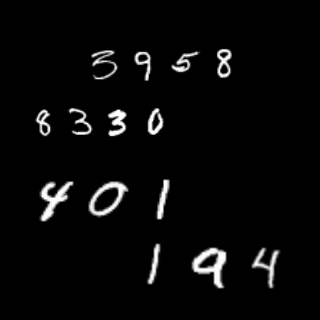 3958
8330
401
194